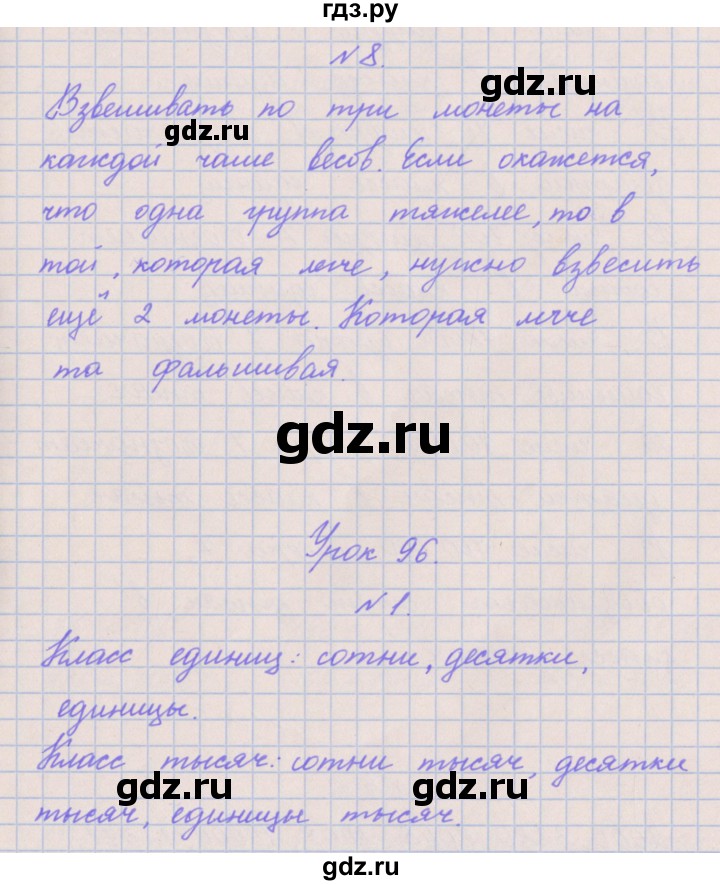 гдз.ру
№ 8.
gdz.ru
Взвешивать по три монеты на
gdz.ru
каждой чаше весов. Если окажется,
что одна группа тяжелее, то в
той, которая легче, нужно взвесить
ещё 2 монеты. Которая легче
та фальшивая.
gdz.ru
Урок 96.
№ 1.
Класс единиц: сотни, десятки,
единицы.
Класс тысяч: сотни тысяч, десятки
gdz.ru gdz.ru
тысяч, единицы тысяч.
gdz.ru